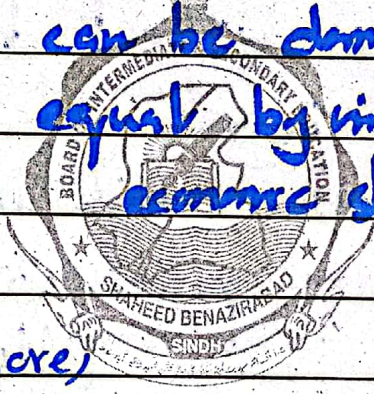 can be dom
equal by in
economic s
ore,
BOARD OF INTERMEDIATE & SECONDARY EDUCATION
SHAHEED BENAZIRABAD
SINDH